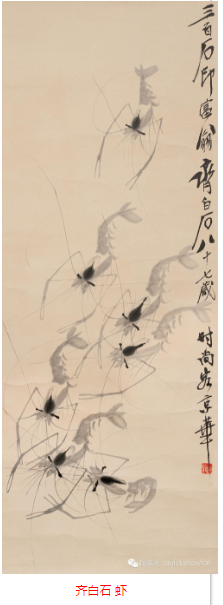 三百石印富翁齐白石八十七岁
时尚客京华
齐白石 虾